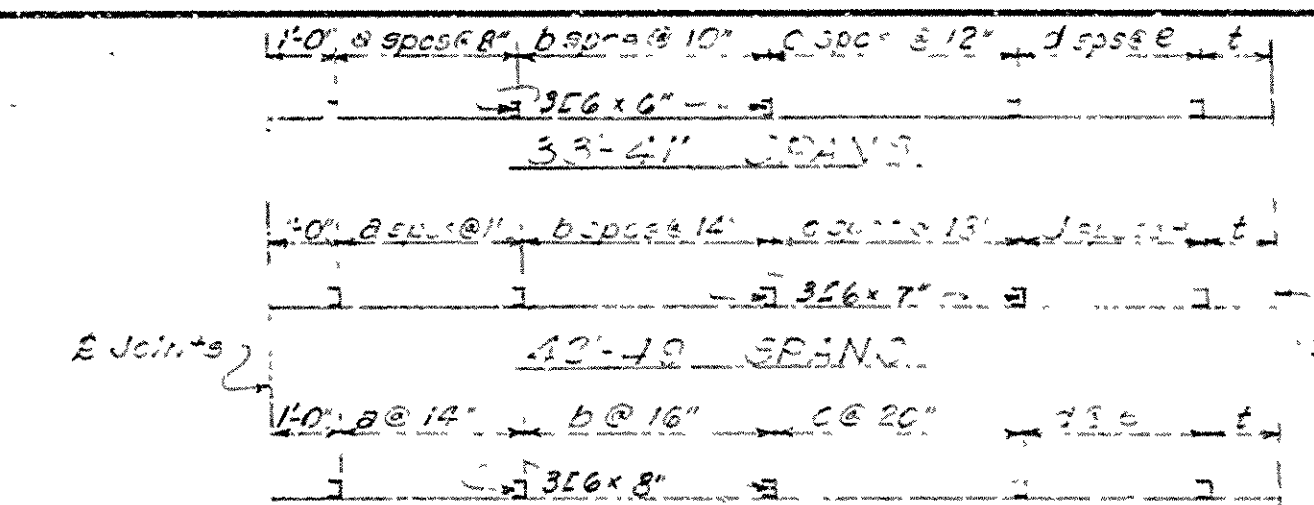 1'-0" a spcs@8" b spcs@ 10" c spcs @ 12" d sps@e t
3[6 × 6"
33'-41' SPANS
1'-0" a spcs@11" b spcs@ 14" c spcs @ 18" t
3[6 × 7"
42'-49 SPANS
℄ Joints
1'-0" a @ 14" b @ 16" c @ 20" d @ e t
3[6 × 8"